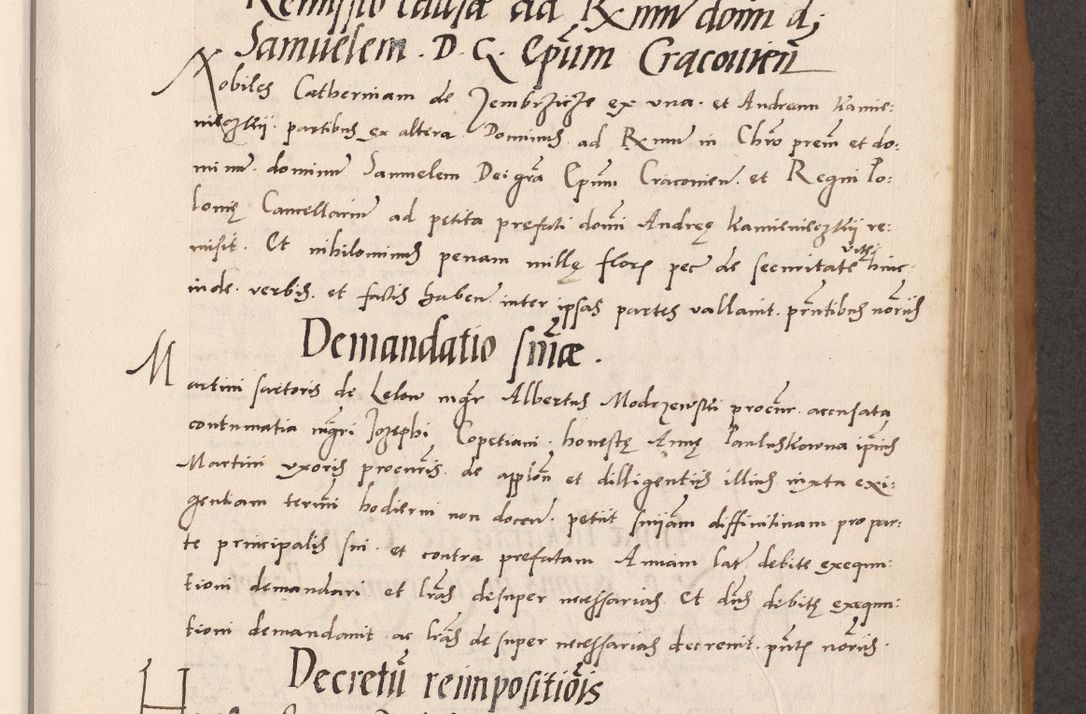 Remissio causæ ad Rx mm̄ dom̄ d;
Samuelem . D . G . Ep̄um Cracovien̄
Nobiles Catherinam de Jembrzicze ex una . et Andream Kamie:
nieczkij . partibus ex altera . Dominus ad Rx mm̄ in Chr̄o prem̄ et do:
minū . dominū Samuelem Dei gr̄a Ep̄um Cracovien̄ . et Regni Po:
lonię Cancellariū ad petita prefati dom̄i Andreę Kamienieczkij re:
misit . Et nihilominus penam millę floren̄ pec̄ de securitate hinc
inde . verbis . et factis haben̄ . inter ipsas partes vallavit . pr̄ntibus nōriis
Demandatio sn̄iæ .
Martini sartoris de Lelow mgr̄ Albertus Modrzewski procur̄ . accusata
contumatia mgr̄i Jozephi Copetiani . honestę Annę Pauluskowna ip̄ius
Martini uxoris procuris . de applōn̄ et dilligentiis illius iuxta exi:
gentiam term̄i hodierni non docen̄ . petiit sn̄iam diffinitivam pro par:
te principalis sui . et contra prefatam Annam lat̄ debite exequu:
tioni demandari et lr̄as desuper necessarias . Et dn̄s debitę exequu:
tioni demandavit . ac lr̄as de super necessarias decrevit . pn̄tę nōriis .
Decretū reimpositiōis